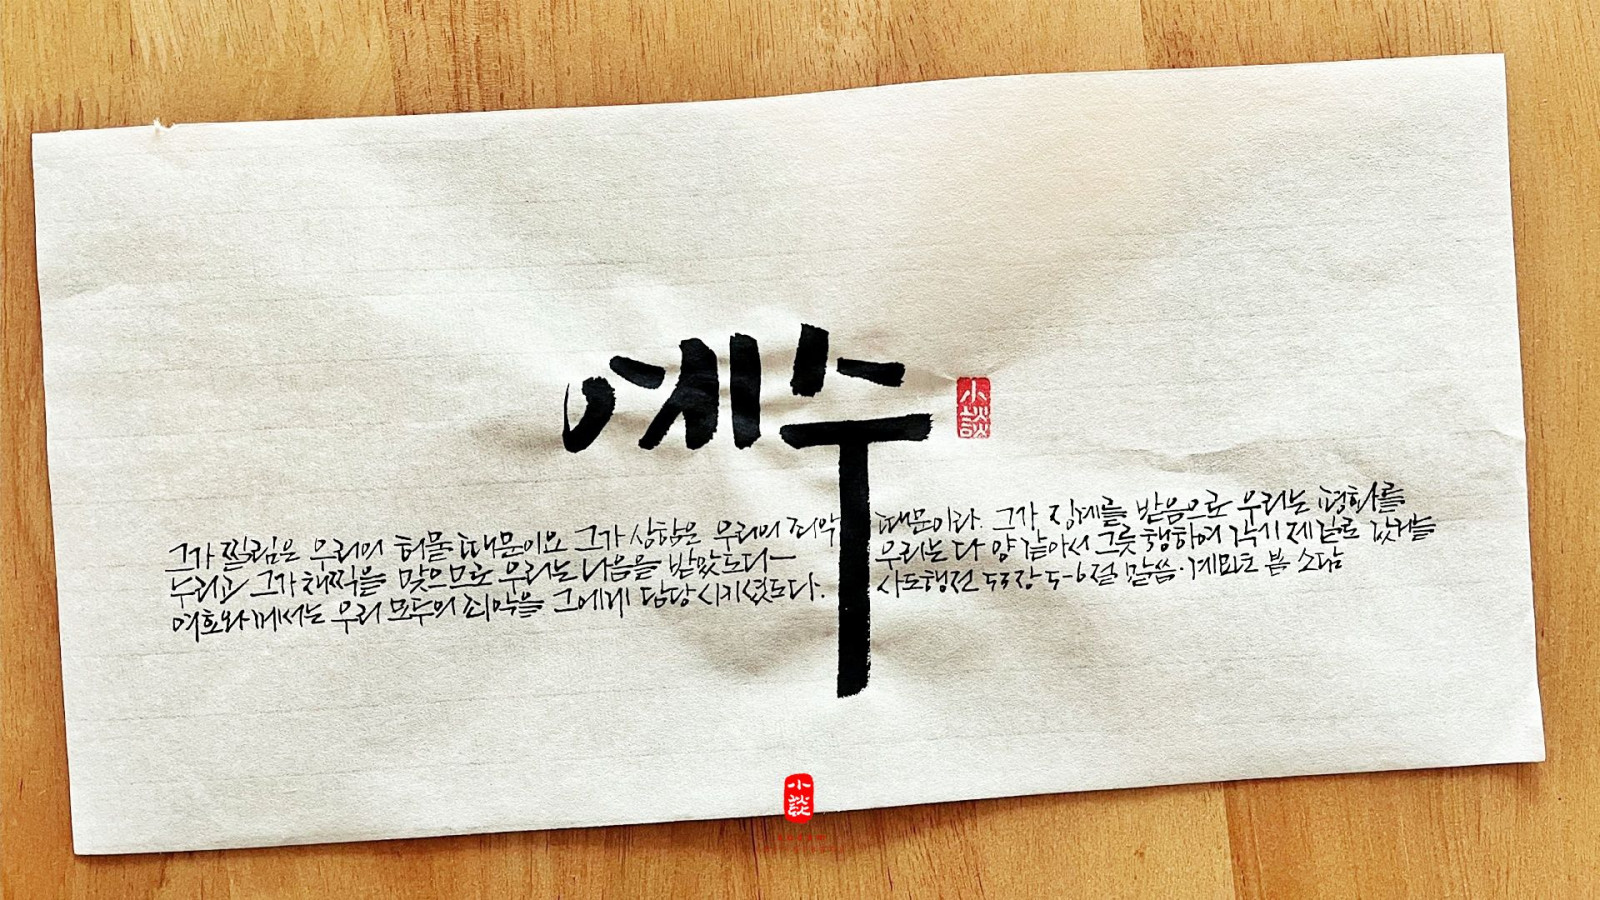 예수
小談
그가 찔림은 우리의 허물 때문이요 그가 상함은 우리의 죄악 때문이라. 그가 징계를 받음으로 우리는 평화를
누리고 그가 채찍을 맞으므로 우리는 나음을 받았도다— 우리는 다 양 같아서 그릇 행하여 각기 제 길로 갔거늘
여호와께서는 우리 모두의 죄악을 그에게 담당시키셨도다. 사도행전 53장 5-6절 말씀·계묘년 봄 소담
小談